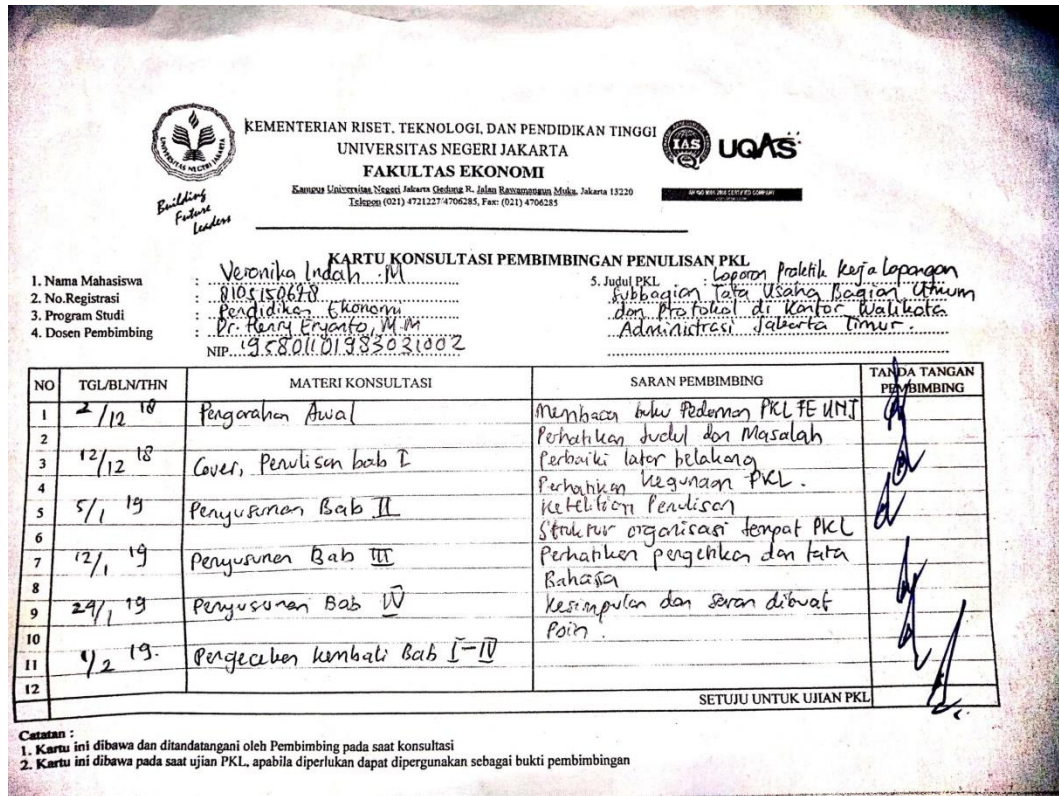 KEMENTERIAN RISET, TEKNOLOGI, DAN PENDIDIKAN TINGGI
UNIVERSITAS NEGERI JAKARTA
FAKULTAS EKONOMI
Kampus Universitas Negeri Jakarta Gedung R, Jalan Rawamangun Muka, Jakarta 13220
Telepon (021) 4721227/4706285, Fax: (021) 4706285
UNIVERSITAS NEGERI JAKARTA
Building
Future
Leaders
IAS
UQAS
KARTU KONSULTASI PEMBIMBINGAN PENULISAN PKL
1. Nama Mahasiswa : Veronika Indah .M
2. No.Registrasi : 8105150698
3. Program Studi : Pendidikan Ekonomi
4. Dosen Pembimbing : Dr. Henry Eryanto, M.M
NIP. 195801101983031002
5. Judul PKL : Laporan Praktik Kerja Lapangan
Subbagian Tata Usaha Bagian Umum
dan Protokol di Kantor Walikota
Administrasi Jakarta Timur.
NO TGL/BLN/THN MATERI KONSULTASI SARAN PEMBIMBING TANDA TANGAN PEMBIMBING
1 2/12 18 Pengarahan Awal Membaca buku Pedoman PKL FE UNJ
2 Perhatikan Judul dan Masalah
3 12/12 18 Cover, Penulisan bab I Perbaiki latar belakang
4 Perhatikan kegunaan PKL.
5 5/1 19 Penyusunan Bab II Ketelitian Penulisan
6 Struktur organisasi tempat PKL
7 12/1 19 Penyusunan Bab III Perhatikan pengetikan dan tata
8 Bahasa
9 29/1 19 Penyusunan Bab IV Kesimpulan dan saran dibuat
10 Poin.
11 1/2 19. Pengecekan kembali Bab I-IV
12
SETUJU UNTUK UJIAN PKL
Catatan :
1. Kartu ini dibawa dan ditandatangani oleh Pembimbing pada saat konsultasi
2. Kartu ini dibawa pada saat ujian PKL, apabila diperlukan dapat dipergunakan sebagai bukti pembimbingan